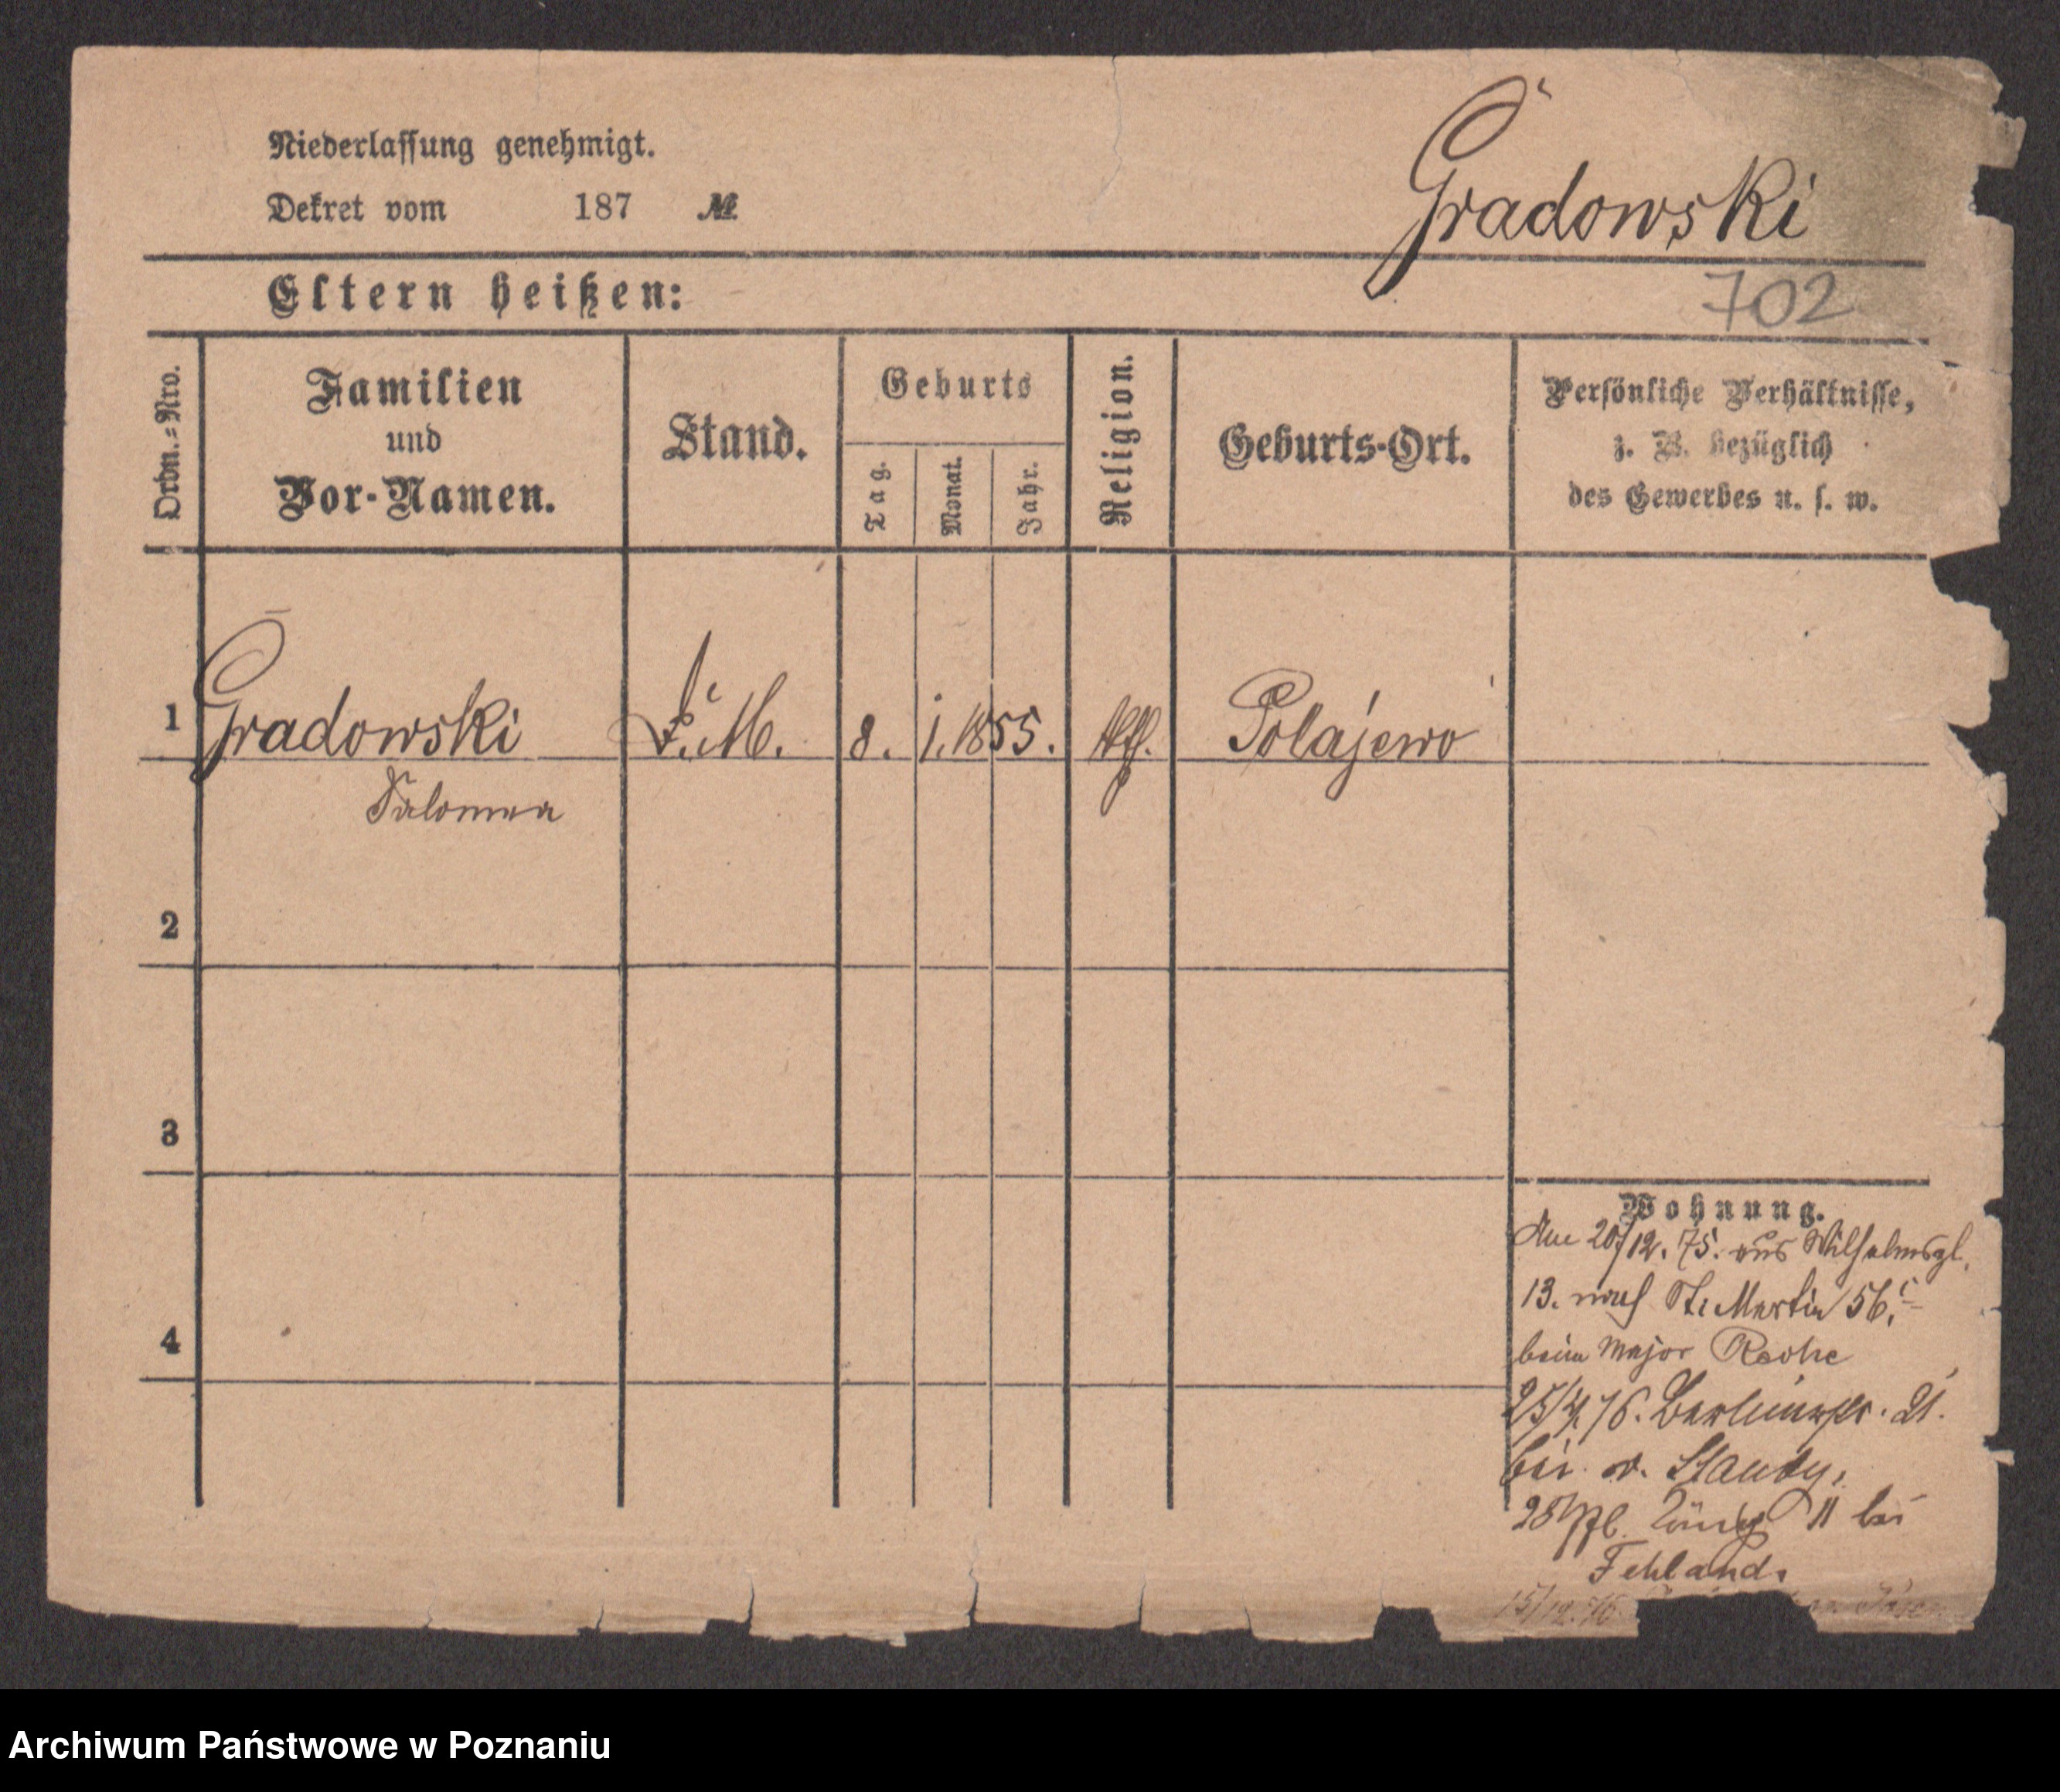 Niederlassung genehmigt.
Dekret vom 187 №
Gradowski
Eltern heißen:
702
Ordn.=Nro.
Familien
und
Vor-Namen.
Stand.
Geburts
Tag.
Monat.
Jahr.
Religion.
Geburts-Ort.
Persönliche Verhältnisse,
z. B. bezüglich
des Gewerbes u. s. w.
1 Gradowski D. M. 8. 1. 1855. Polajewo
Salomea
2
3
4
Wohnung.
20/12. 75. aus Wilhelmspl.
13. nach St. Martin 56.
beim Major
25/4. 76. Berlinerstr. 21.
bei v. Staudy.
28/ 11 bei
Fehland.
15/12. 76.
Archiwum Państwowe w Poznaniu